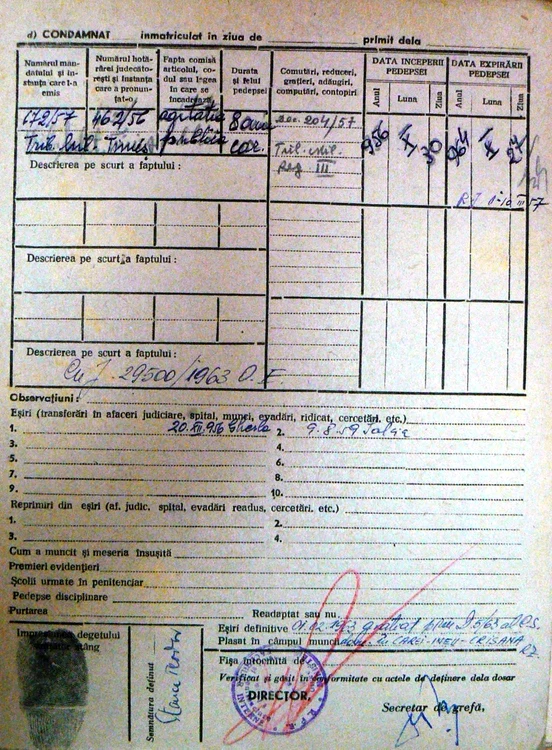 d) CONDAMNAT inmatriculat in ziua de primit dela
Numărul mandatului și instanța care l-a emis
Numărul hotărârei judecătorești și instanța care a pronunțat-o
Fapta comisă articolul, codul sau legea în care se încadrează
Durata și felul pedepsei
Comutări, reduceri, grațieri, adăugiri, computări, contopiri
DATA INCEPERII PEDEPSEI
DATA EXPIRĂRII PEDEPSEI
Anul Luna Ziua Anul Luna Ziua
172/57 462/56 agitatie 8 ani Dec. 204/57 956 X 30 964 X 27
Trib. Mil. Timiș publica cor. Trib. Mil.
Reg III
Descrierea pe scurt a faptului :
Descrierea pe scurt a faptului :
Descrierea pe scurt a faptului :
29500/1963
Observațiuni :
Eșiri (transferări în afaceri judiciare, spital, munci, evadări, ridicat, cercetări. etc.)
1. 20.XII.956 Gherla 2. 9.8.59 Salcia
3. 4.
5. 6.
7. 8.
9. 10.
Reprimiri din eșiri (af. judic. spital, evadări readus, cercetări. etc.)
1. 2.
3. 4.
Cum a muncit și meseria însușită
Premieri evidențieri
Școlii urmate în penitenciar
Pedepse disciplinare
Purtarea
Readeptat sau nu
Eșiri definitive
Plasat în câmpul muncii
Impresiunea degetului
stâng
Semnătura deținut
Fișa întocmită de
Verificat și găsit în conformitate cu actele de deținere dela dosar
DIRECTOR,
Secretar de grefă,